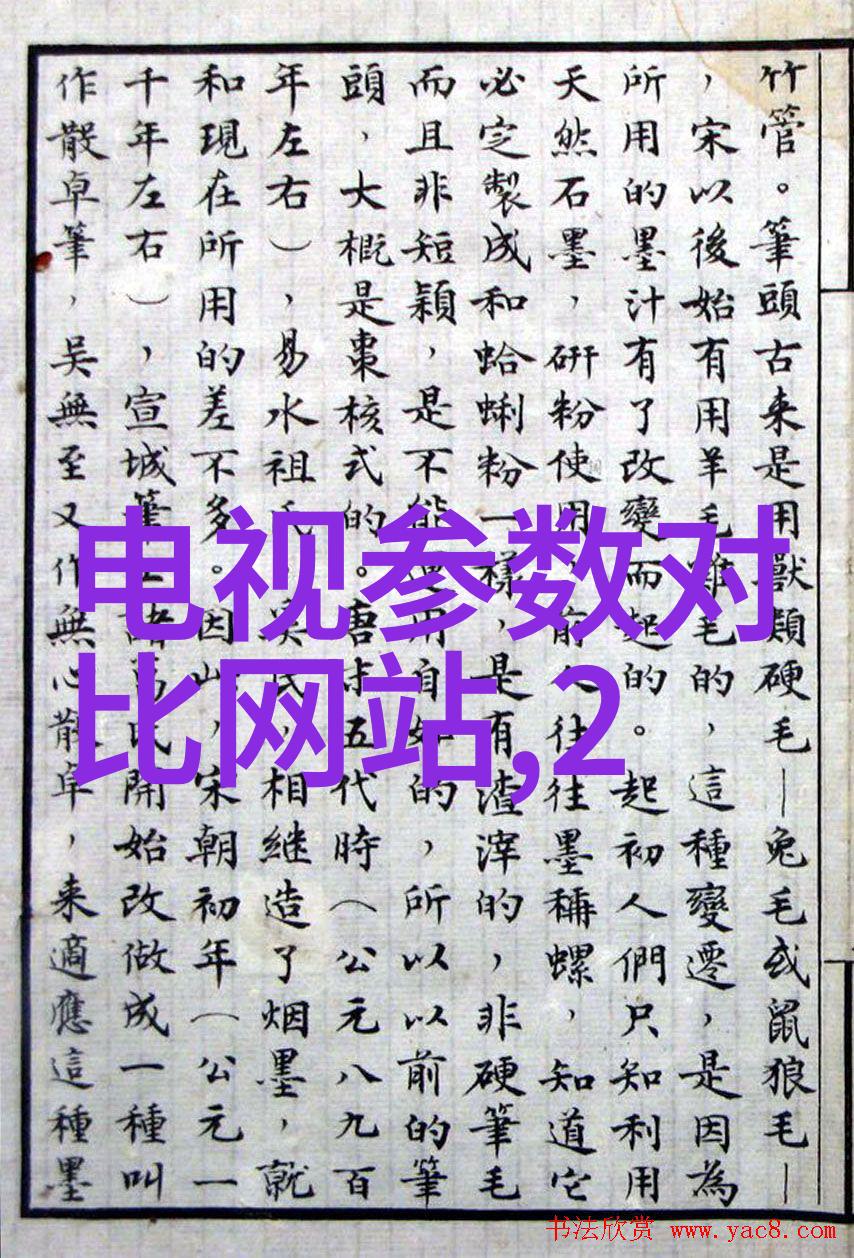 竹管。筆頭古来是用獸類硬毛—兔毛或鼠狼毛—
，宋以後始有用羊毛雞毛的，這種變遷，是因為
所用的墨汁有了改變而起的。起初人們只知利用
天然石墨，研粉使用，前人往往墨稱螺，知道它
必定製成和蛤蜊粉一樣，是有渣滓的，非硬筆毛
而且非短穎，是不能運用自如的，所以以前的筆
頭，大概是棗核式的。唐末五代時（公元八九百
年左右），易水祖氏、吳氏，相継造了烟墨，就
和現在所用的差不多。因此，宋朝初年（公元一
千年左右），宣城筆工諸葛氏開始改做成一種叫
作散卓筆，吳無至又作無心散卓，来適應這種墨
电视参数对
比网站,2
书法欣赏 www.yac8.com